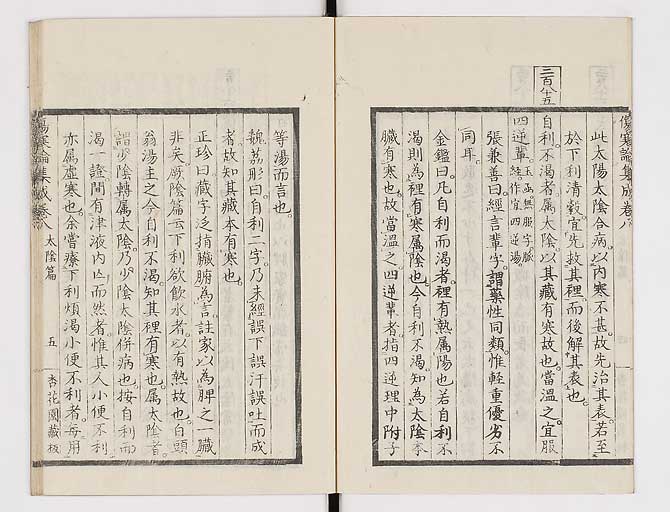 傷寒論集成卷八
此太陽太陰合病。以内寒不甚。故先治其表。若至
於下利清穀。宜先救其裡。而後解其表也。
三百十五
自利。不渴者。屬太陰。以其藏有寒故也。當溫之。宜服
四逆輩。玉函無服字。脈經作宜四逆湯。
張兼善曰。經言輩字。謂藥性同類。惟輕重優劣不
同耳。
金鑑曰。凡自利而渴者。裡有熱。屬陽也。若自利不
渴。則為裡有寒。屬陰也。今自利不渴。知為太陰本
臟有寒也。故當溫之。四逆輩者。指四逆理中附子
等湯而言也。
魏荔彤曰。自利二字。乃未經誤下誤汗誤吐而成
者。故知其藏本有寒也。
正珍曰。藏字泛指臟腑為言。註家以為脾之一臟
非矣。厥陰篇云。下利欲飲水者。以有熱故也。白頭
翁湯主之。今自利不渴。知其裡有寒也。屬太陰者。
謂少陰轉屬太陰。乃少陰太陰併病也。按自利而
渴一證。間有津液内亡而然者。惟其人小便不利
亦屬虛寒也。余嘗療下利煩渴小便不利者。每用
傷寒論集成卷八 太陰篇 五 杏花園藏板